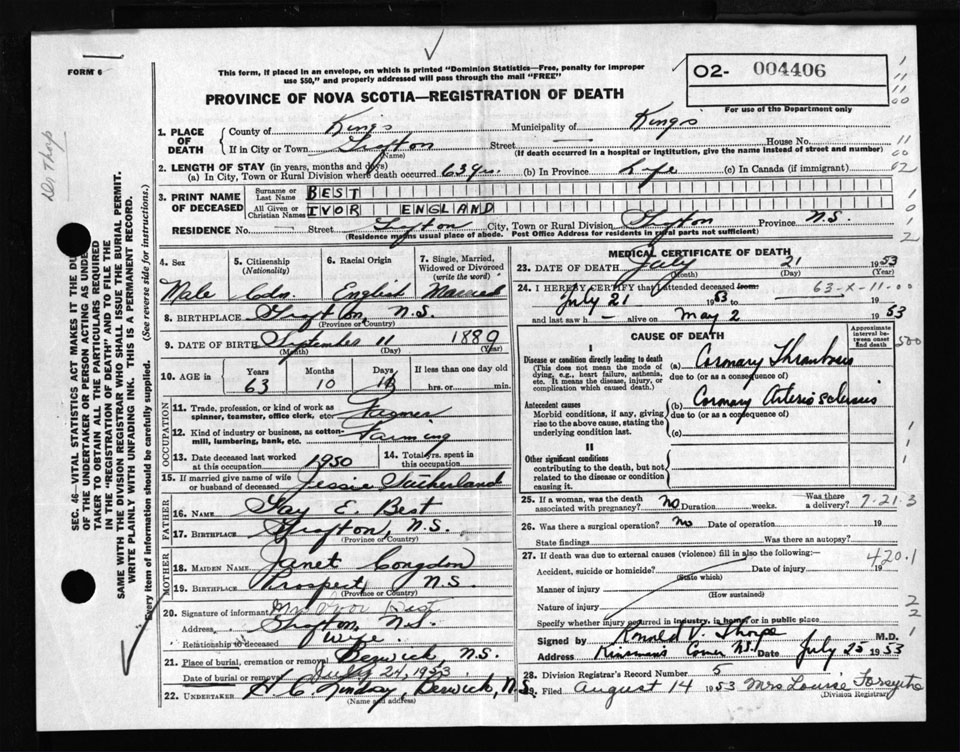 FORM 6
This form, if placed in an envelope, on which is printed "Dominion Statistics—Free, penalty for improper
use $50," and properly addressed will pass through the mail "FREE"
PROVINCE OF NOVA SCOTIA—REGISTRATION OF DEATH
O2- 004406
For use of the Department only
1. PLACE OF DEATH
County of Kings Municipality of Kings
If in City or Town Grafton Street — House No.
(Name) (If death occurred in a hospital or institution, give the name instead of street and number)
2. LENGTH OF STAY (in years, months and days)
(a) In City, Town or Rural Division where death occurred 63 yrs. (b) In Province Life (c) In Canada (if immigrant)
3. PRINT NAME OF DECEASED
Surname or Last Name BEST
All Given or Christian Names IVOR ENGLAND
RESIDENCE No. — Street Grafton City, Town or Rural Division Grafton Province N.S.
(Residence means usual place of abode. Post Office Address for residents in rural parts not sufficient)
4. Sex
Male
5. Citizenship (Nationality)
Cdn.
6. Racial Origin
English
7. Single, Married, Widowed or Divorced (write the word)
Married
8. BIRTHPLACE Grafton, N.S.
(Province or Country)
9. DATE OF BIRTH September 11 1889
(Month) (Day) (Year)
10. AGE in Years Months Days If less than one day
63 10 hrs. or min.
OCCUPATION
11. Trade, profession or kind of work as spinner, teamster, office clerk, etc. Farmer
12. Kind of industry or business, as cotton-mill, lumbering, bank, etc. Farming
13. Date deceased last worked at this occupation 1950
14. Total yrs. spent in this occupation
15. If married give name of wife or husband of deceased Jessie Sutherland
FATHER
16. Name Fay E. Best
17. Birthplace Grafton, N.S.
(Province or Country)
MOTHER
18. MAIDEN NAME Janet Congdon
19. BIRTHPLACE Prospect N.S.
(Province or Country)
20. Signature of informant Mrs Ivor Best
Address Grafton, N.S.
Relationship to deceased Wife
21. Place of burial, cremation or removal Berwick N.S.
Date of burial or removal July 24, 1953
22. UNDERTAKER H C Lindsay, Berwick, N.S.
(Name and address)
MEDICAL CERTIFICATE OF DEATH
23. DATE OF DEATH July 21 1953
(Month) (Day) (Year)
24. I HEREBY CERTIFY that I attended deceased from 63-X-11-00
July 21 1953 to
and last saw h — alive on May 2 1953
CAUSE OF DEATH
Approximate interval between onset and death
500
I
Disease or condition directly leading to death
(This does not mean the mode of dying, e.g., heart failure, asthenia, etc. It means the disease, injury, or complication which caused death.)
(a) Coronary Thrombosis
due to (or as a consequence of)
Antecedent causes
Morbid conditions, if any, giving rise to the above cause, stating the underlying condition last.
(b) Coronary Arterio sclerosis
due to (or as a consequence of)
(c)
II
Other significant conditions
contributing to the death, but not related to the disease or condition causing it.
25. If a woman, was the death associated with pregnancy? no Duration weeks. Was there a delivery? 7-21-3
26. Was there a surgical operation? no Date of operation 19
State findings Was there an autopsy?
27. If death was due to external causes (violence) fill in also the following:—
420.1
Accident, suicide or homicide? Date of injury 19
(State which)
Manner of injury
(How sustained)
Nature of injury
Specify whether injury occurred in industry, in home, or in public place
Signed by Ronald V. Thorpe M.D.
Address Kinsman's Corner N.S. Date July 25 1953
28. Division Registrar's Record Number 5
29. Filed August 14 1953 Mrs Louise Forsythe
(Division Registrar)
SEC. 46—VITAL STATISTICS ACT MAKES IT THE
OF THE UNDERTAKER OR PERSON ACTING AS
TAKER TO OBTAIN ALL THE PARTICULARS REQUIRED
IN THE "REGISTRATION OF DEATH" AND TO FILE THE
SAME WITH THE DIVISION REGISTRAR WHO SHALL ISSUE THE BURIAL PERMIT.
WRITE PLAINLY WITH UNFADING INK. THIS IS A PERMANENT RECORD.
Every item of information should be carefully supplied. (See reverse side for instructions.)